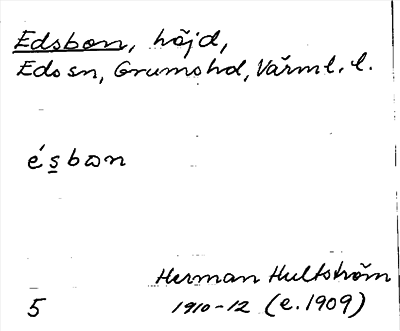 Edsbon, höjd,
Eds sn, Grums hd, Värml. l.
é s̲ b ω n
Herman Hultström
5 1910-12 (e. 1909)